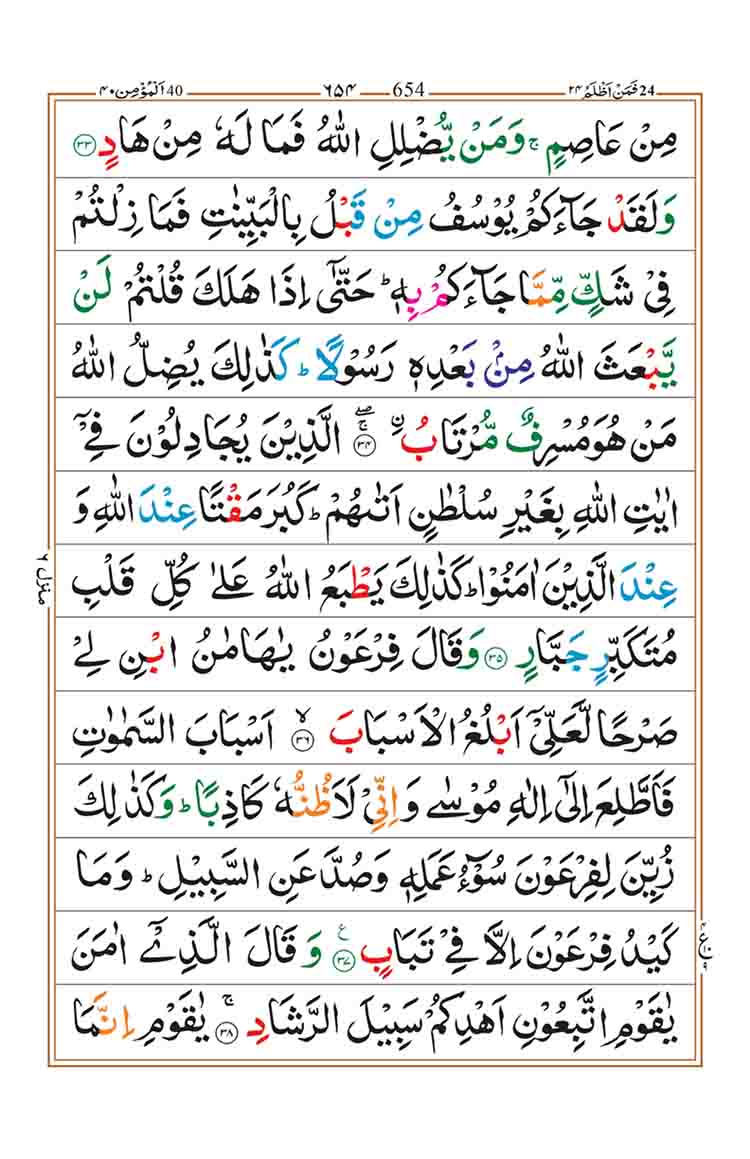 24 فَمَنْ اَظْلَمُ ۲۴ 654 ۶۵۴ 40 اَلْمُؤْمِن ۴۰
مِنْ عَاصِمٍ ۚ وَمَنْ یُّضْلِلِ اللّٰهُ فَمَا لَهٗ مِنْ هَادٍ ﴿۳۳﴾
وَلَقَدْ جَآءَكُمْ یُوْسُفُ مِنْ قَبْلُ بِالْبَیِّنٰتِ فَمَا زِلْتُمْ
فِیْ شَكٍّ مِّمَّا جَآءَكُمْ بِهٖ ؕ حَتّٰۤی اِذَا هَلَكَ قُلْتُمْ لَنْ
یَّبْعَثَ اللّٰهُ مِنْۢ بَعْدِهٖ رَسُوْلًا ؕ كَذٰلِكَ یُضِلُّ اللّٰهُ
مَنْ هُوَ مُسْرِفٌ مُّرْتَابُ ۣ ﴿۳۴﴾ ۚۖ الَّذِیْنَ یُجَادِلُوْنَ فِیْۤ
اٰیٰتِ اللّٰهِ بِغَیْرِ سُلْطٰنٍ اَتٰىهُمْ ؕ كَبُرَ مَقْتًا عِنْدَ اللّٰهِ وَ
عِنْدَ الَّذِیْنَ اٰمَنُوْا ؕ كَذٰلِكَ یَطْبَعُ اللّٰهُ عَلٰی كُلِّ قَلْبِ
مُتَكَبِّرٍ جَبَّارٍ ﴿۳۵﴾ وَقَالَ فِرْعَوْنُ یٰهَامٰنُ ابْنِ لِیْ
صَرْحًا لَّعَلِّیْۤ اَبْلُغُ الْاَسْبَابَ ﴿۳۶﴾ ۙ اَسْبَابَ السَّمٰوٰتِ
فَاَطَّلِعَ اِلٰۤی اِلٰهِ مُوْسٰی وَاِنِّیْ لَاَظُنُّهٗ كَاذِبًا ؕ وَكَذٰلِكَ
زُیِّنَ لِفِرْعَوْنَ سُوْٓءُ عَمَلِهٖ وَصُدَّ عَنِ السَّبِیْلِ ؕ وَمَا
كَیْدُ فِرْعَوْنَ اِلَّا فِیْ تَبَابٍ ﴿۳۷﴾ ع وَقَالَ الَّذِیْۤ اٰمَنَ
یٰقَوْمِ اتَّبِعُوْنِ اَهْدِكُمْ سَبِیْلَ الرَّشَادِ ﴿۳۸﴾ ۚ یٰقَوْمِ اِنَّمَا
منزل ۶